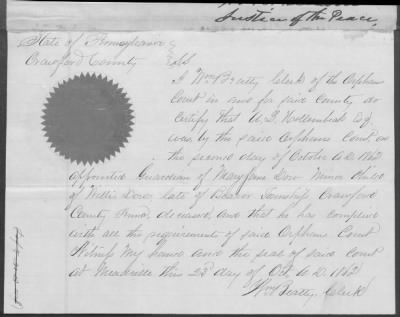 Justice of the Peace,
State of Pennsylvania
Crawford County SS
I Wm Beatty Clerk of the Orphans
Court in and for said County do
certify that A. B. Esq
was by the said Orphans Court on
the second day of October A.D. 1862
appointed Guardian of Mary Jane Dow minor child
of Willis Dow, late of Township Crawford
County Penna, deceased, and that he has complied
with all the requirements of said Orphans Court
Witness My hand and the seal of said Court
at Meadville this 23 day of Oct A.D. 1862
Wm Beatty, Clerk